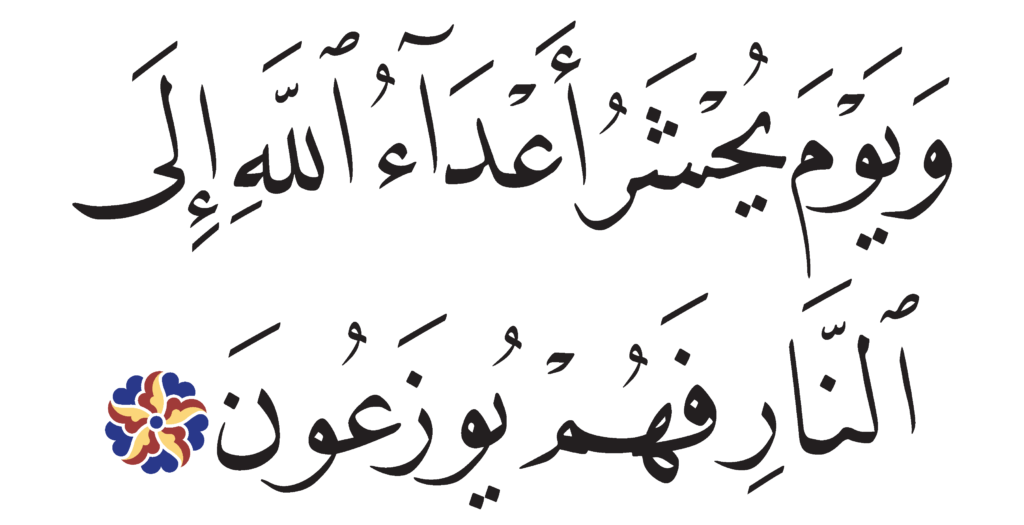 وَيَوْمَ يُحْشَرُ أَعْدَآءُ ٱللَّهِ إِلَى
ٱلنَّارِ فَهُمْ يُوزَعُونَ